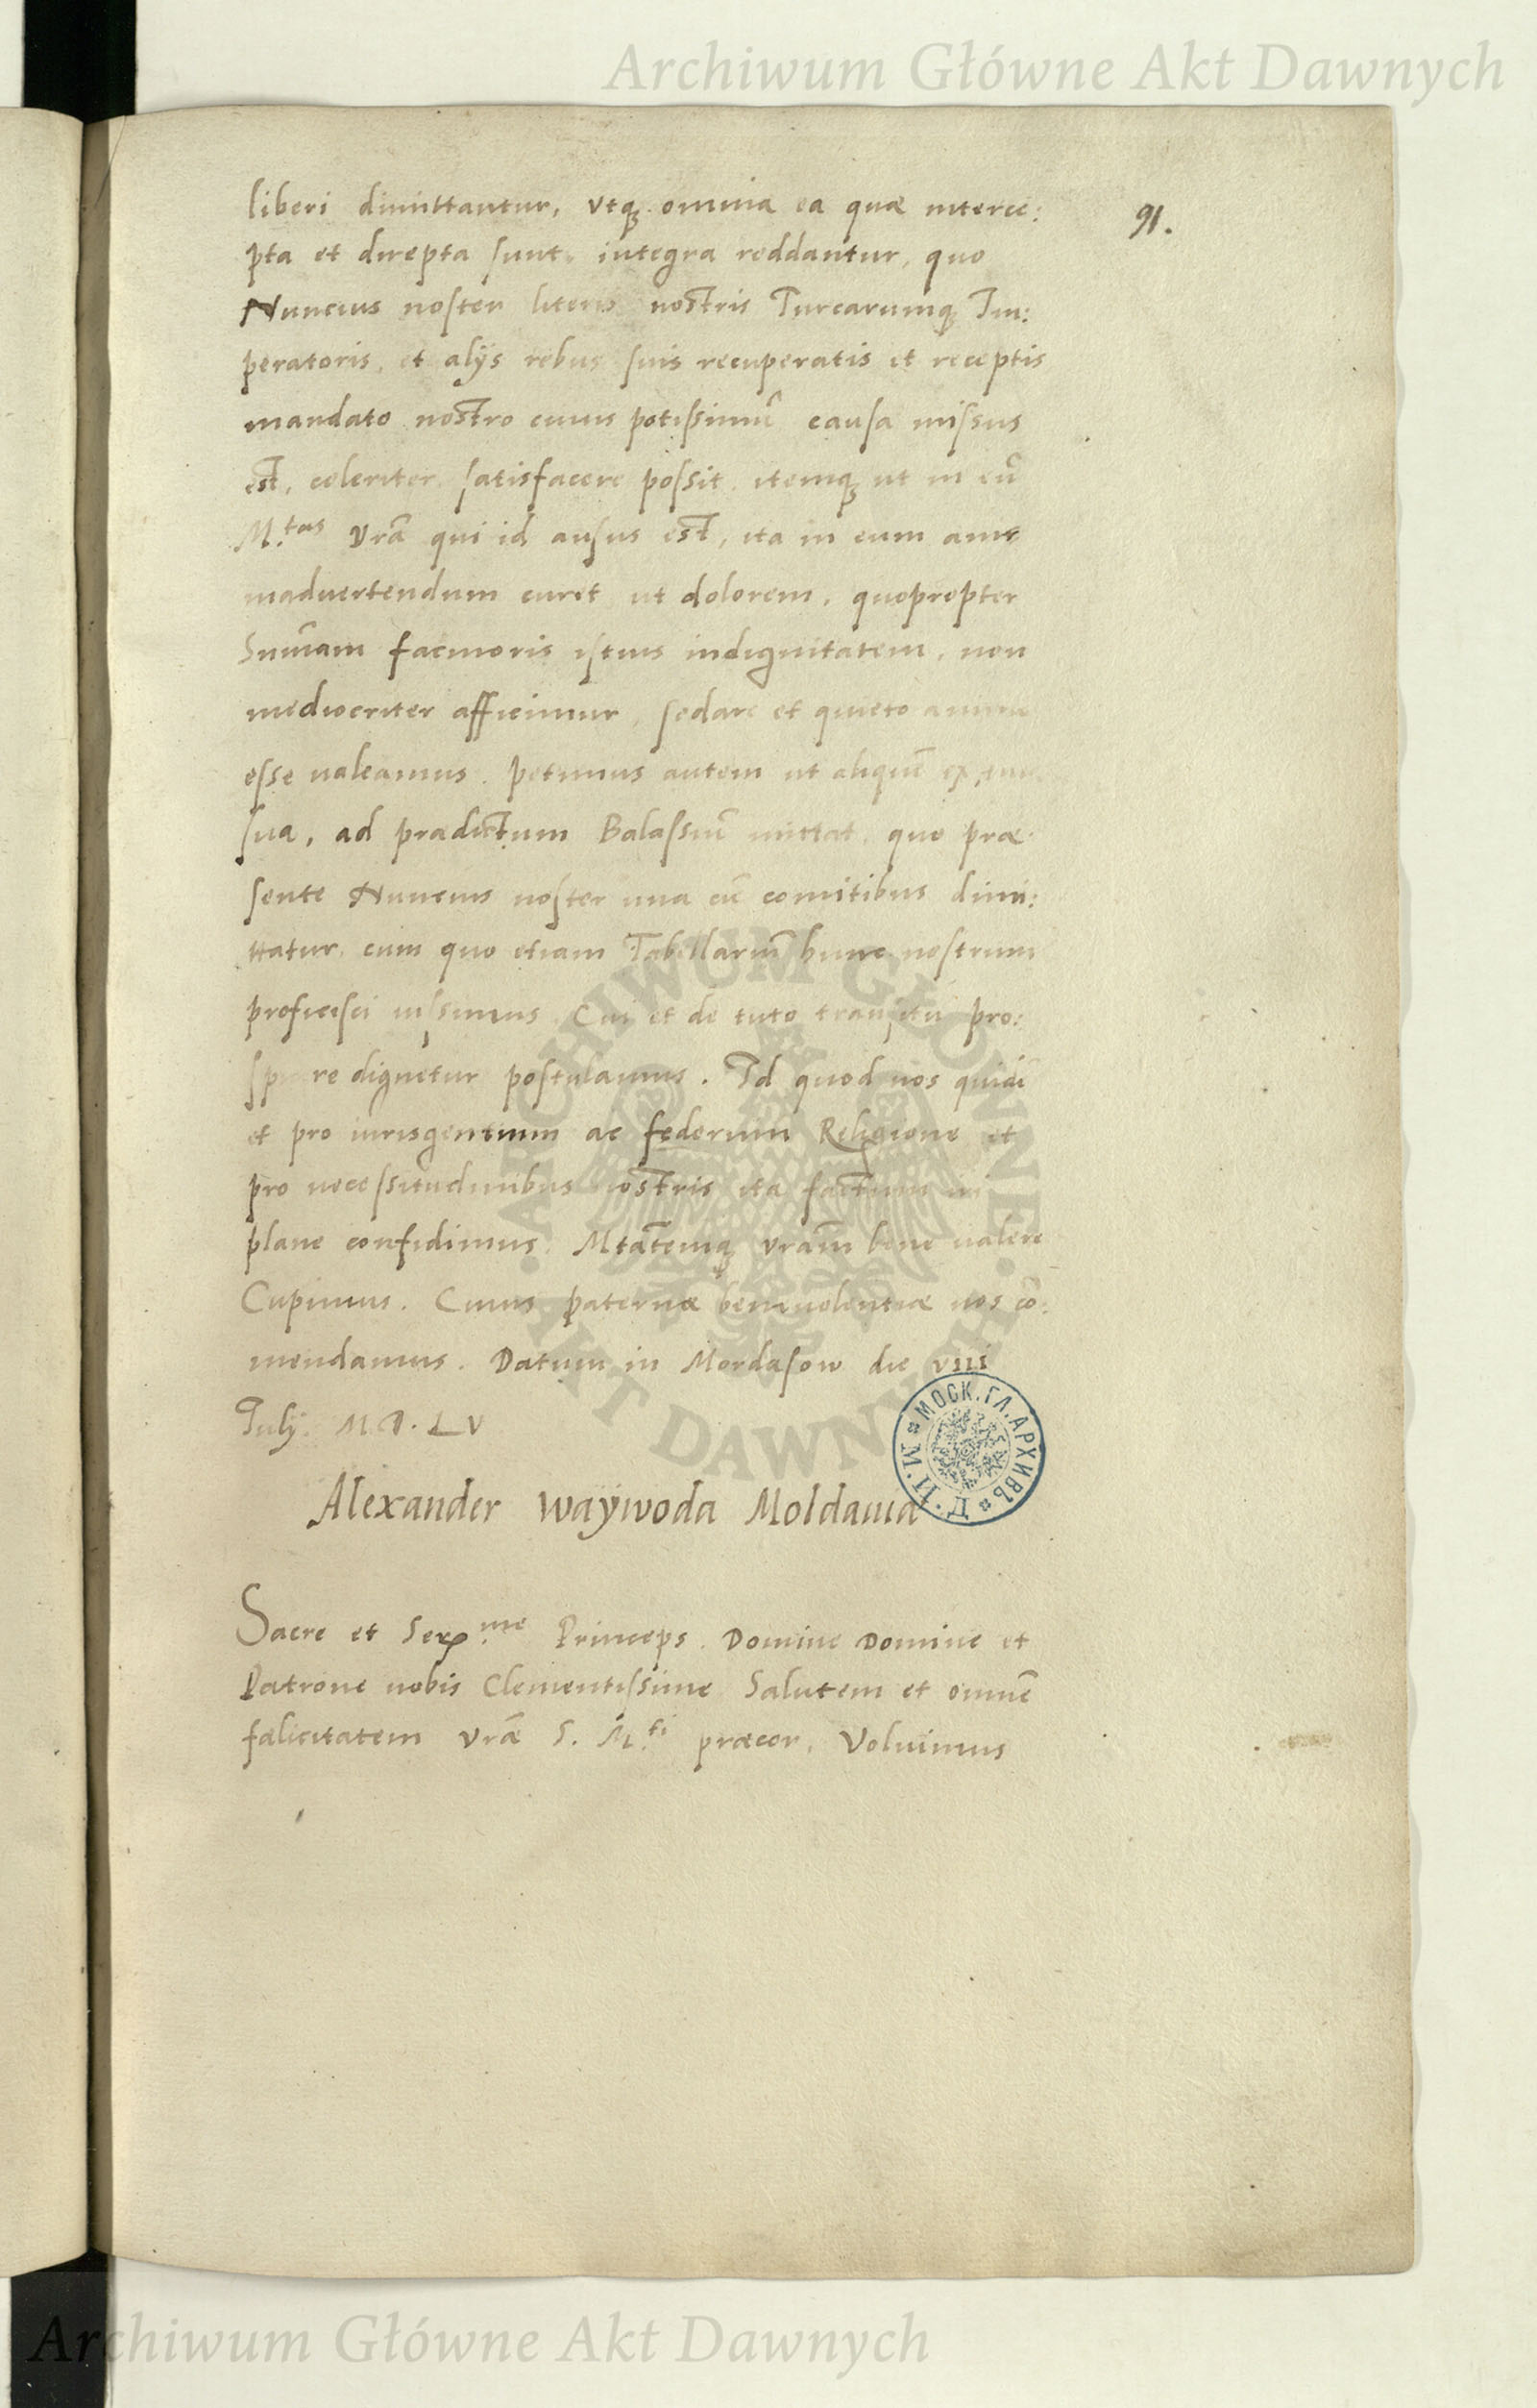 Archiwum Główne Akt Dawnych
91.
liberi dimittantur, vtq̃ omnia ea quæ interce:
pta et direpta sunt, integra reddantur, quo
Nuncius noster literis nostris Turcarumq̃ Im:
peratoris, et alijs rebus suis recuperatis et receptis
mandato nostro cuius potissimũ causa missus
est, celeriter satisfacere possit, itemq̃ ut in eũ
M.tas Vrã qui id ausus est, ita in eum ani
maduertendum curet ut dolorem, quo propter
Sum̃am facinoris istius indignitatem, non
mediocriter afficimur, sedare et quieto animo
esse valeamus. Petimus autem ut aliquẽ ex
sua, ad prædictum Balassiũ mittat, quo præ
sente Nuncius noster una cũ comitibus dimi:
ttatur, cum quo etiam Tabellariũ hunc nostrum
proficisci iussimus. Cui et de tuto transitu pro:
re dignetur postulamus. Id quod nos quidẽ
et pro iurisgentium ac federum Religione et
pro necessitudinibus nostris ita factum iri
plane confidimus. Mtãtemq̃ vrãm bene valere
Cupimus. Cuius paternæ beniuolentiæ nos cõ:
mendamus. Datum in Mordasow die viii
Iulij M.D.LV
Alexander Waÿwoda Moldauiæ
МОСК. ГЛ. АРХИВЪ * М. И. Д. *
Sacre et Ser.me Princeps. Domine Domine et
Patrone nobis Clementissime Salutem et omnẽ
fælicitatem Vrã S. M.ti præcor, Voluimus
ARCHIWUM GŁÓWNE · AKT DAWNYCH ·
Archiwum Główne Akt Dawnych